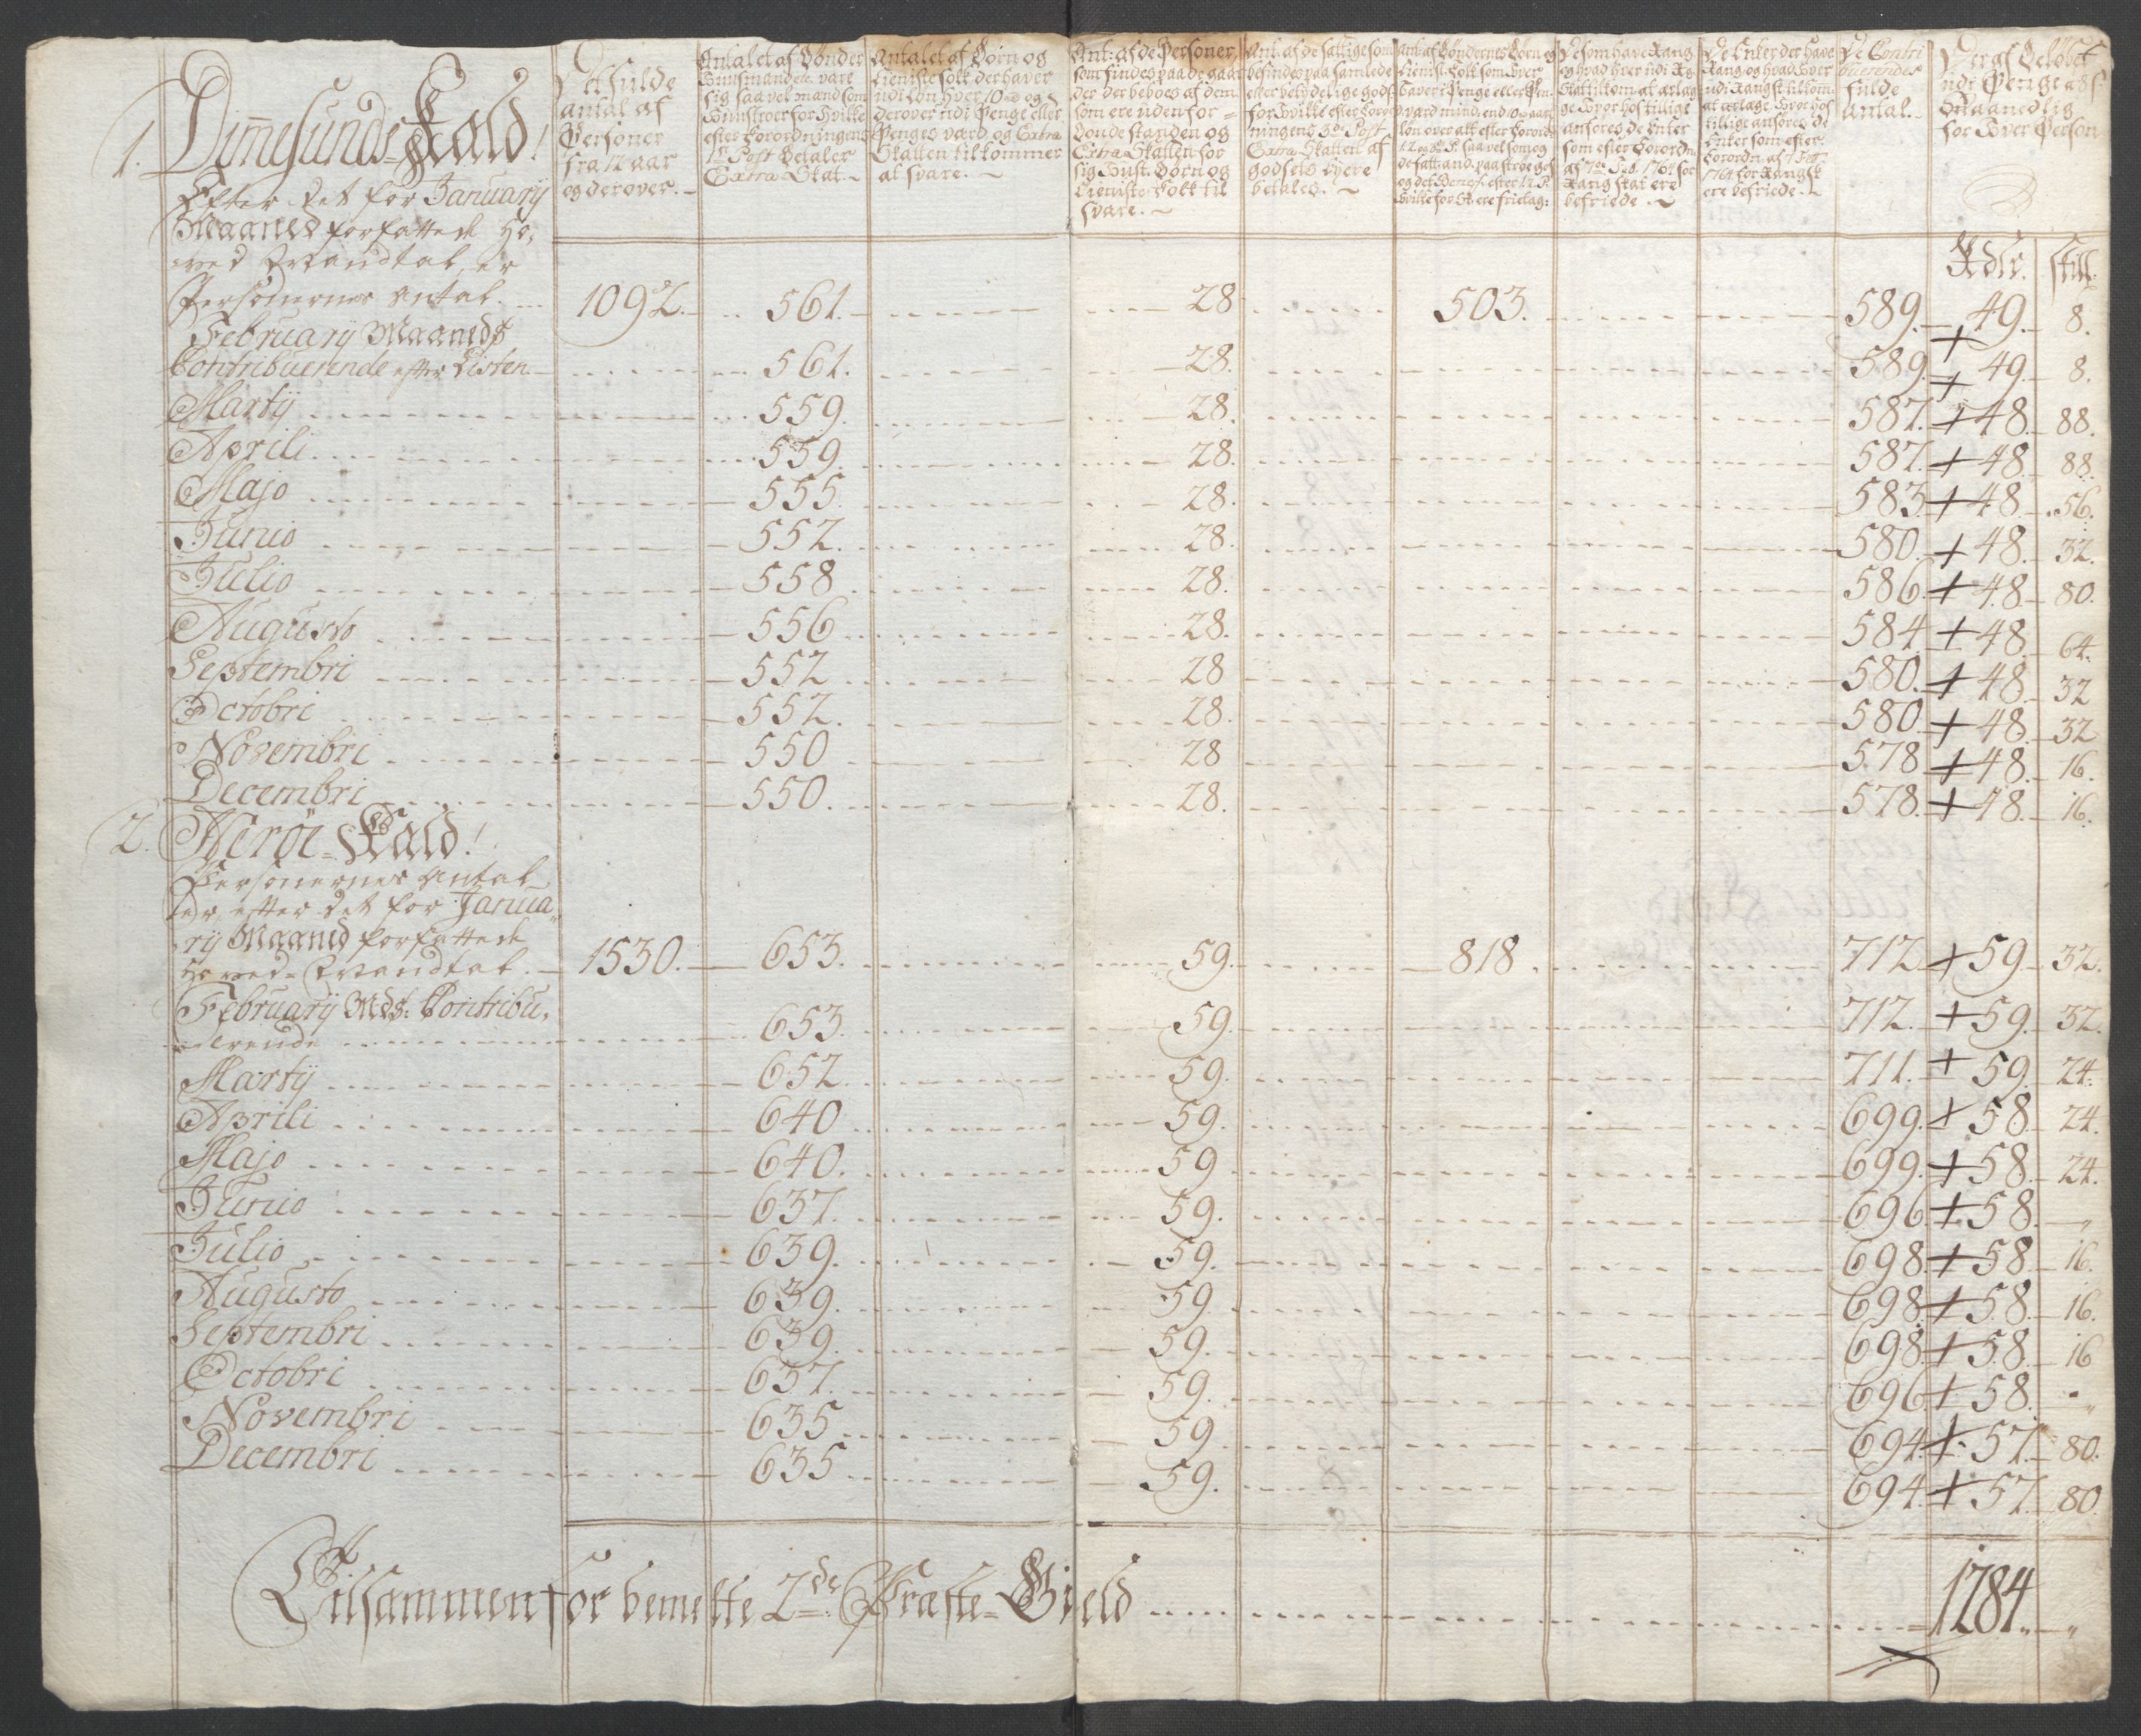 Det fulde
antal af
Personer
fra 12 aar
og derover.
Antalet af Bönder
Huusmænd etc. være
sig saavel mænd som
Huustroer for hvilke
efter Forordningens
1ste Post betales
Extra Skat.
Antalet af Börn og
Tieniste folk der haver
udi Lön hver 10 rd og
derover udi Penge eller
Penges værd og Extra
Skatten tilkommer
at svare.
Ant: af de Personer,
som findes paa de gaar
der der beboes af dem
som ere udenfor
bonde standen og
Extra Skatten for
sig Hust. Börn og
Tieniste Folk til
svare.
Ant. af de fattige som
befindes paa samlede
eller betydelige gods
for hvilke efter Forord
ningens 3die Post
Extra Skatten af
godsets Eyere
betales.
Ant: af Böndernes Börn og
Tienist. Folk som hver
haver i Penge eller Pen,
værd mind. end 10 rd aarl.
lön over alt efter Forordn
1. 2 og 3die P. saavel som og
de fatt: and. paa ströe gods
De som have Rang
og hvad hver udi Rg
Skat tilkom at aflag
ge hvor hos tillige
anföres de Enker
som efter Forordn
af 7de Feb. 1764 for
Rang skat ere
befriede.
De Enker der have
Rang og hvad hver
udi Rangsk tilkom
at erlage hvor hos
tillige anföres de
Enker som efter
Forordn. af 7 Feb.
1764 for Rangsk
ere befriede.
De Contri
buerendes
fulde
Antal.
Deraf Belöbet
udi Penge
Maanedlig
for hver Person
Rdlr. Skill.
1. Dönnesunds Kald!
Efter det for January
Maaned forfattede Ho,
ved Mandtal, er
Personernes Antal. 1092. 561. 28 503. 589. 49. 8.
February Maaneds
Contribuerende efter Listen 561. 28. 589. 49. 8.
Martÿ 559. 28. 587. 48. 88.
Aprili 559. 28. 587. 48. 88.
Majo 555. 28. 583 48. 56.
Junio 552. 28. 580. 48. 32.
Julio 558 28. 586. 48. 80.
Augusto 556 28. 584 48. 64.
Septembri 552 28 580. 48. 32
Octobri 552. 28. 580. 48. 32
Novembri 550 28 578 48. 16.
Decembri 550. 28. 578. 48. 16.
2. Heröe Kald!
Personernes Antal
er efter det for Janua,
rÿ Maaned forfattede
Hoved Mandtal. 1530. 653. 59. 818. 712 59 32.
February Mds. Contribu,
erende 653. 59. 712. 59. 32.
Martÿ 652. 59. 711. 59. 24.
Aprili 640 59. 699. 58. 24.
Majo 640. 59 699. 58. 24.
Junio 637. 59. 696 58. "
Julio 639. 59. 698 58. 16.
Augusto 639. 59 698 58. 16.
Septembri 639. 59. 698 58. 16
Octobri 637. 59. 696 58. "
Novembri 635. 59. 694. 57. 80.
Decembri 635 59. 694. 57. 80
Tilsammen for bemelte 2de Præste-Gield 1784. "